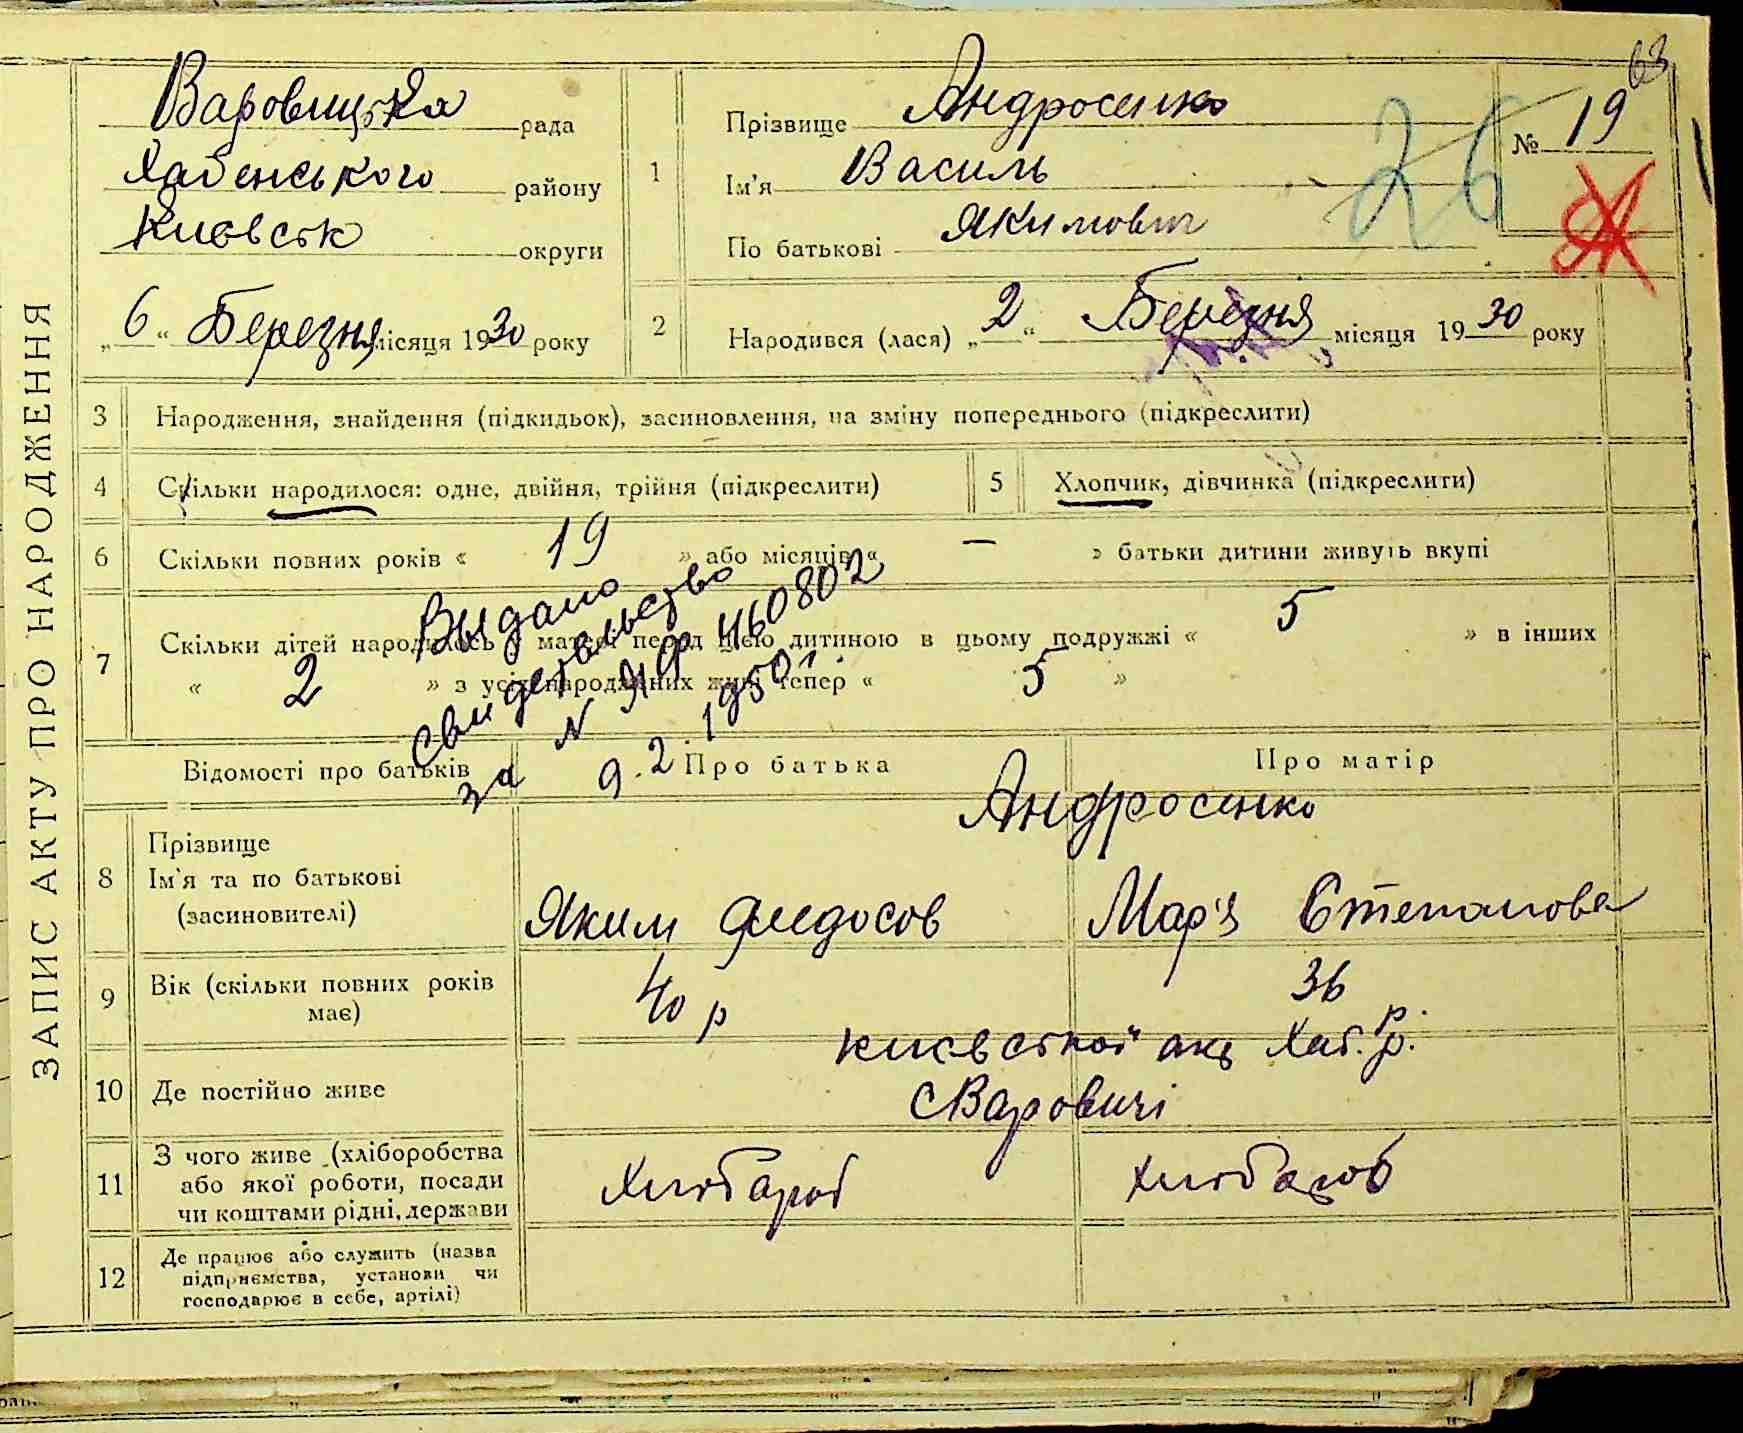 ЗАПИС АКТУ ПРО НАРОДЖЕННЯ
63
Варовицька рада
Хабенського району
Київськ округи
„6“ Березня місяця 1930 року
1
Прізвище Андросенко
Ім'я Василь
По батькові Якимович
№ 19
26
2
Народився (лася) „2“ Березня місяця 1930 року
3 Народження, знайдення (підкидьок), засиновлення, на зміну попереднього (підкреслити)
4 Скільки народилося: одне, двійня, трійня (підкреслити)
5 Хлопчик, дівчинка (підкреслити)
6 Скільки повних років « 19 » або місяців « — » батьки дитини живуть вкупі
7 Скільки дітей народилось у матері перед цією дитиною в цьому подружжі « 5 » в інших
« 2 » з усіх народжених живі тепер « 5 »
Выдано
свидетельство
за N ЯФ 460802
9.2.1950 г
Відомості про батьків
Про батька
Про матір
Андросенко
8 Прізвище
Ім'я та по батькові
(засиновителі)
Яким Федосов
Мар'я Степанова
9 Вік (скільки повних років
має)
40 р
36 р.
10 Де постійно живе
Києвської окр Хаб. р.
с Варовичі
11 З чого живе (хліборобства
або якої роботи, посади
чи коштами рідні, держави
Хлібароб
Хлібароб
12 Де працює або служить (назва
підприємства, установи чи
господарює в себе, артілі)